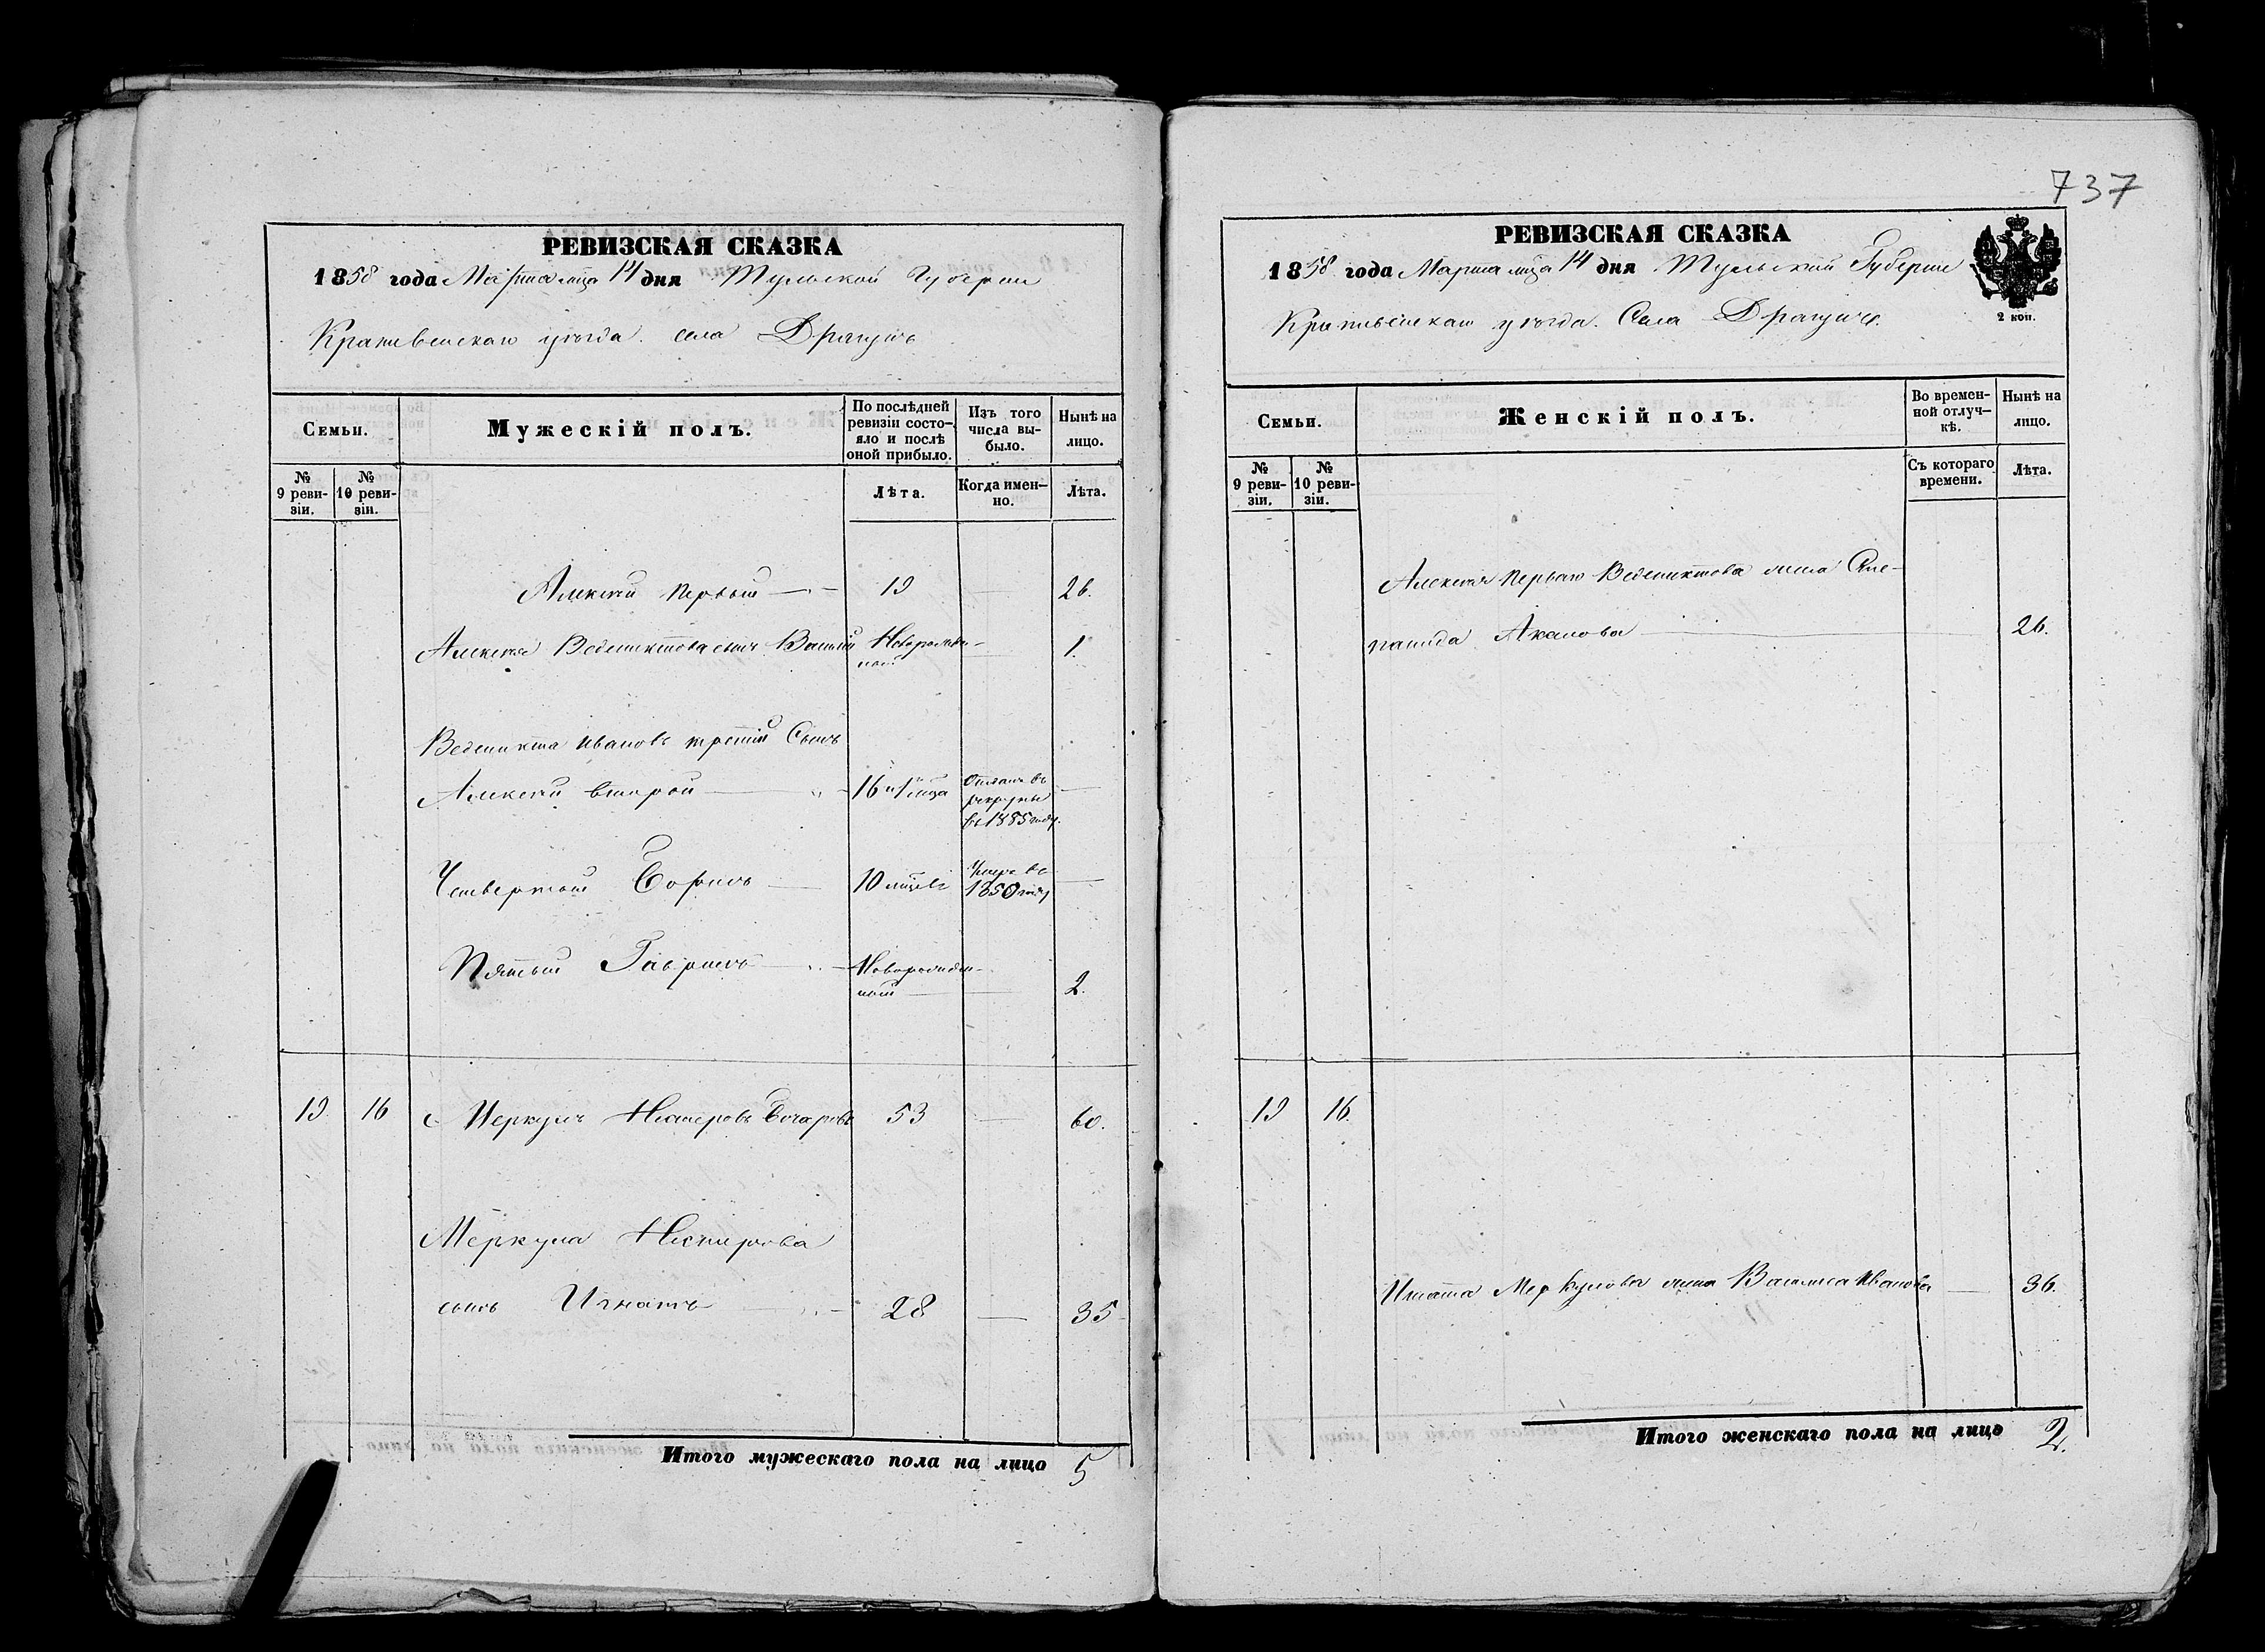 737
РЕВИЗСКАЯ СКАЗКА
1858 года Марта мца 14 дня Тульской Губернии
Крапивенскаго уѣзда. села
Семьи.
Мужескій полъ.
По послѣдней ревизіи состояло и послѣ оной прибыло.
Изъ того числа выбыло.
Нынѣ на лицо.
№ 9 ревизіи.
№ 10 ревизіи.
Лѣта.
Когда именно.
Лѣта.
Алексѣй первый 19 26.
Алексѣя Ведениктова сынъ Василій Новорожденный 1.
Веденикта Иванова третій Сынъ
Алексѣй второй 16 и 1 мца Отданъ въ рекруты въ 1855 году.
Четвертый Борисъ 10 мцевъ Умеръ въ 1850 году
Пятый Гаврилъ Новорожденный 2.
19. 16 Меркулъ Нестеровъ Бочаровъ 53 60.
Меркула Нестерова
сынъ Игнатъ 28 35
Итого мужескаго пола на лицо 5
РЕВИЗСКАЯ СКАЗКА
1858 года Марта мца 14 дня Тульской Губернии
Крапивенскаго уѣзда. Села
2 коп.
Семьи.
Женскій полъ.
Во временной отлучкѣ.
Нынѣ на лицо.
№ 9 ревизіи.
№ 10 ревизіи.
Съ котораго времени.
Лѣта.
Алексѣя перваго Ведениктова жена Сте-
панида 26.
19 16.
Игната Меркулова жена Василиса Иванова 36.
Итого женскаго пола на лицо 2.